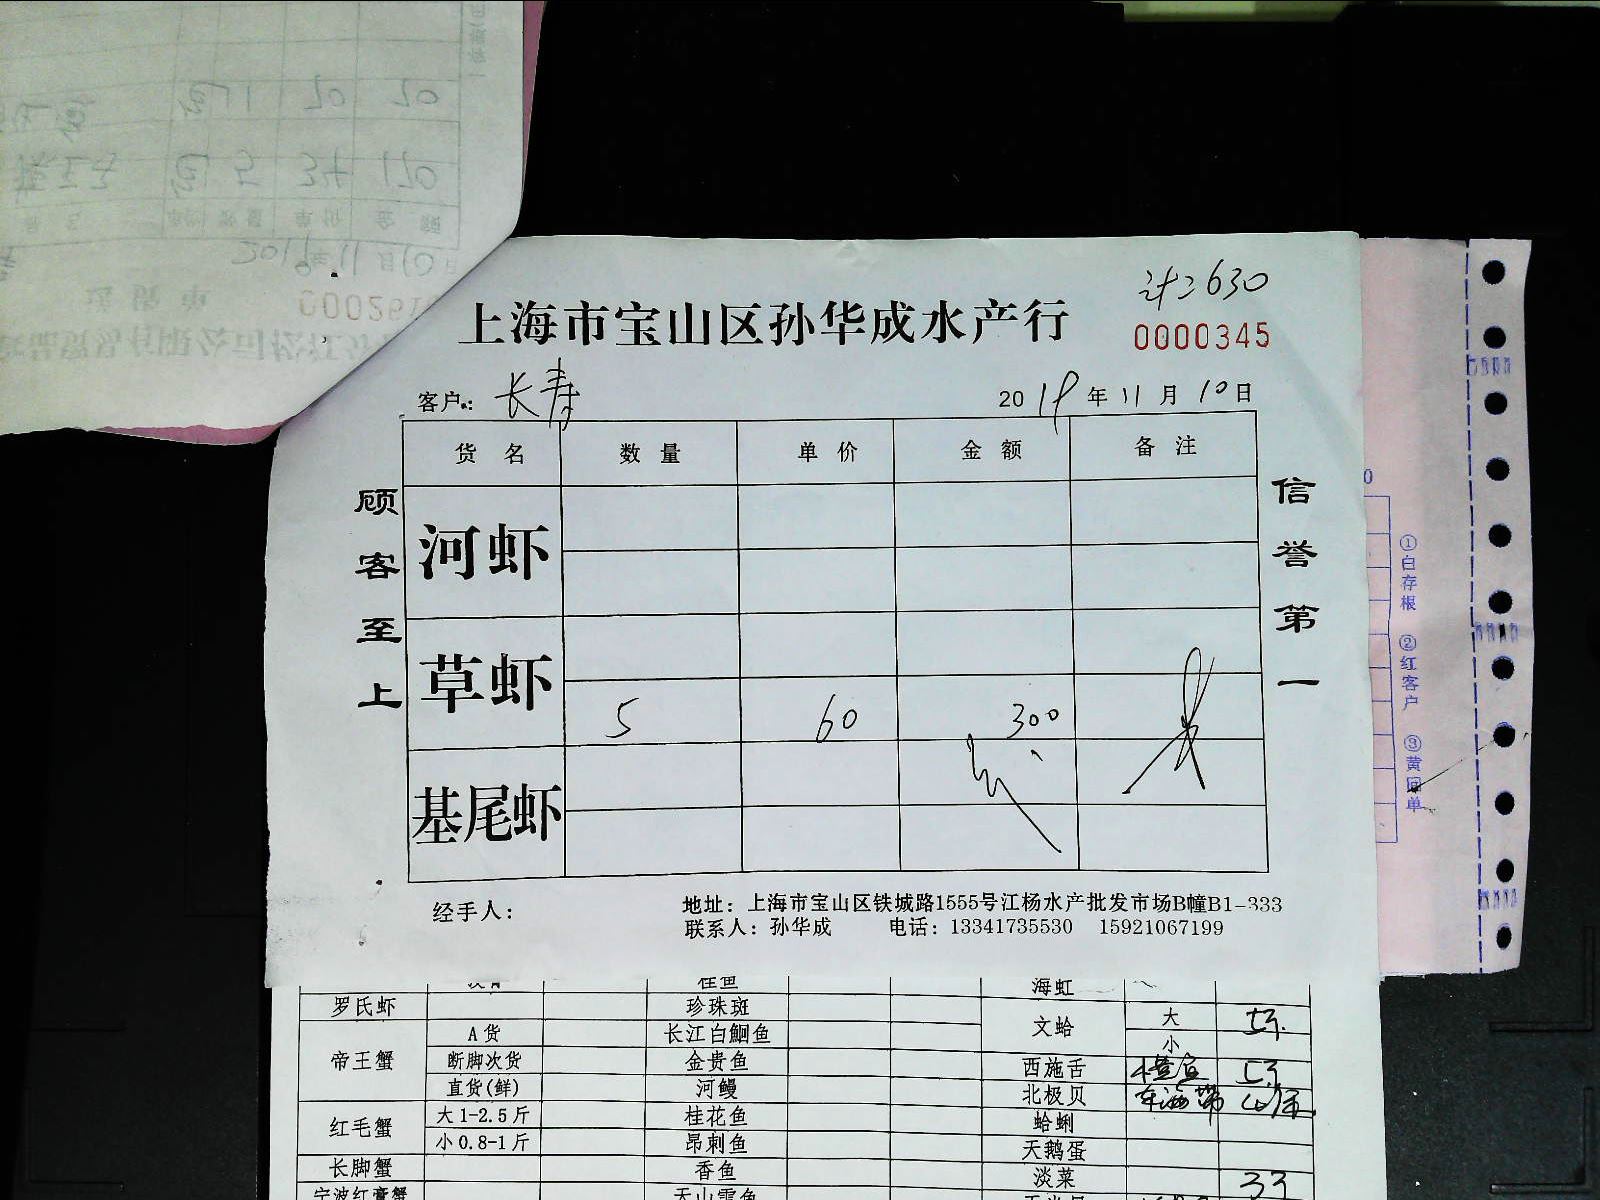 计:630
上海市宝山区孙华成水产行
0000345
客户: 长寿 2019年11月10日
货名 数量 单价 金额 备注
顾客至上
信誉第一
河虾
草虾
5 60 300
基尾虾
经手人:
地址: 上海市宝山区铁城路1555号江杨水产批发市场B幢B1-333
联系人: 孙华成 电话: 13341735530 15921067199
①白存根 ②红客户 ③黄回单
桂鱼 海虹
罗氏虾 珍珠斑 文蛤 大
帝王蟹 A货 长江白鮰鱼 小
断脚次货 金贵鱼 西施舌
直货(鲜) 河鳗 北极贝
红毛蟹 大1-2.5斤 桂花鱼 蛤蜊
小0.8-1斤 昂刺鱼 天鹅蛋
长脚蟹 香鱼 淡菜 33
宁波红膏蟹
0002610
2019年11月10日
5 34 170
1 70 70